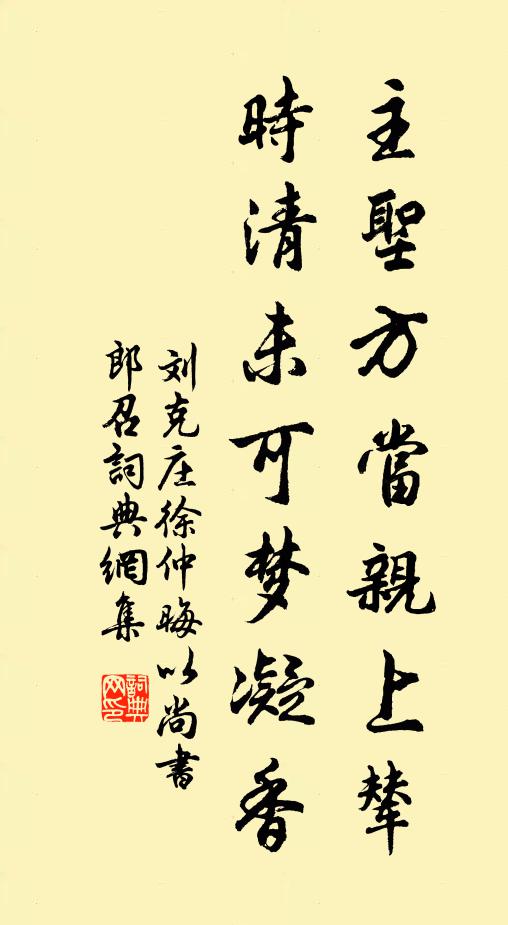 主聖方當親上輦
時清未可梦凝香
刘克庄徐仲晦以尚書
郎召詞典網集
詞典网印